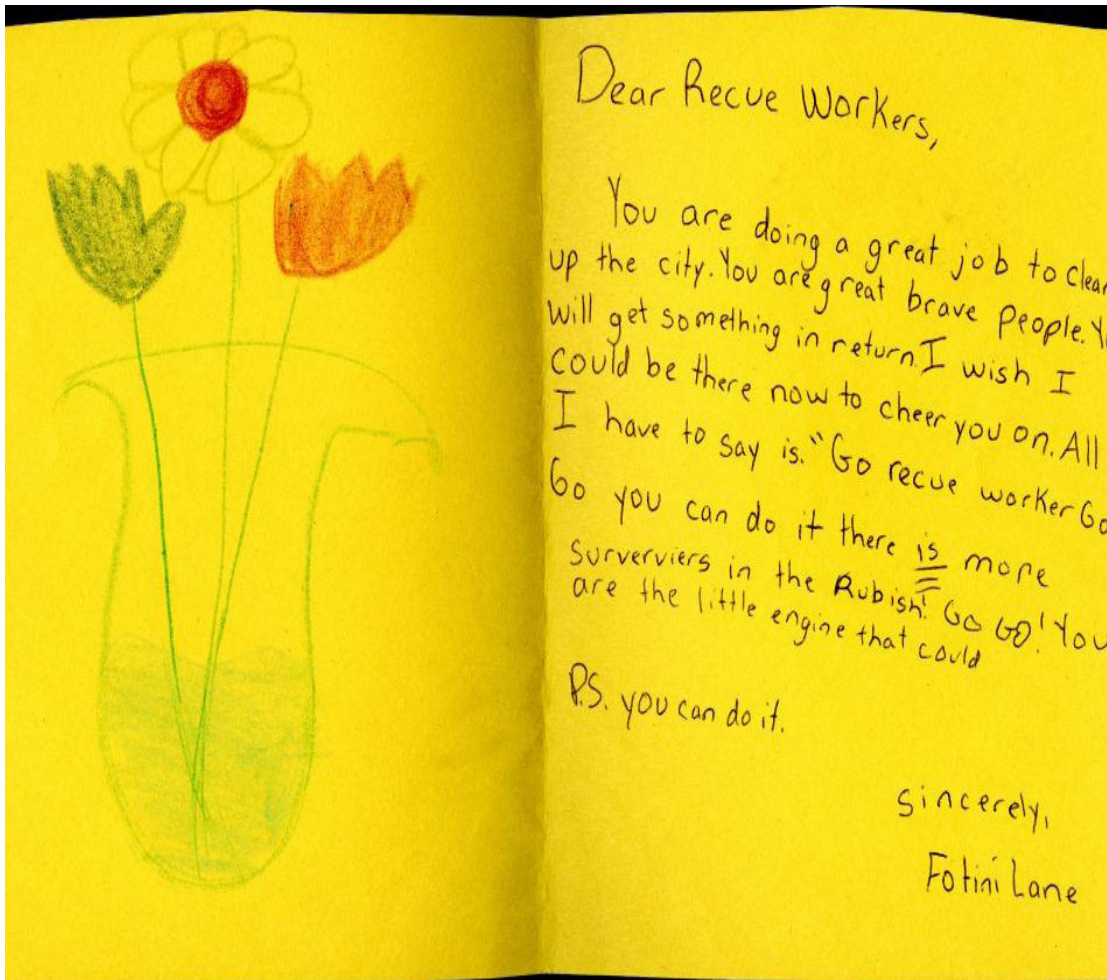 Dear Recue Workers,
You are doing a great job to clean
up the city. You are great brave people. Yo
will get something in return. I wish I
could be there now to cheer you on. All
I have to say is. "Go recue worker Go
Go you can do it there is more
Surverviers in the Rubish! Go GO! You
are the little engine that could
P.S. you can do it.
sincerely,
Fotini Lane